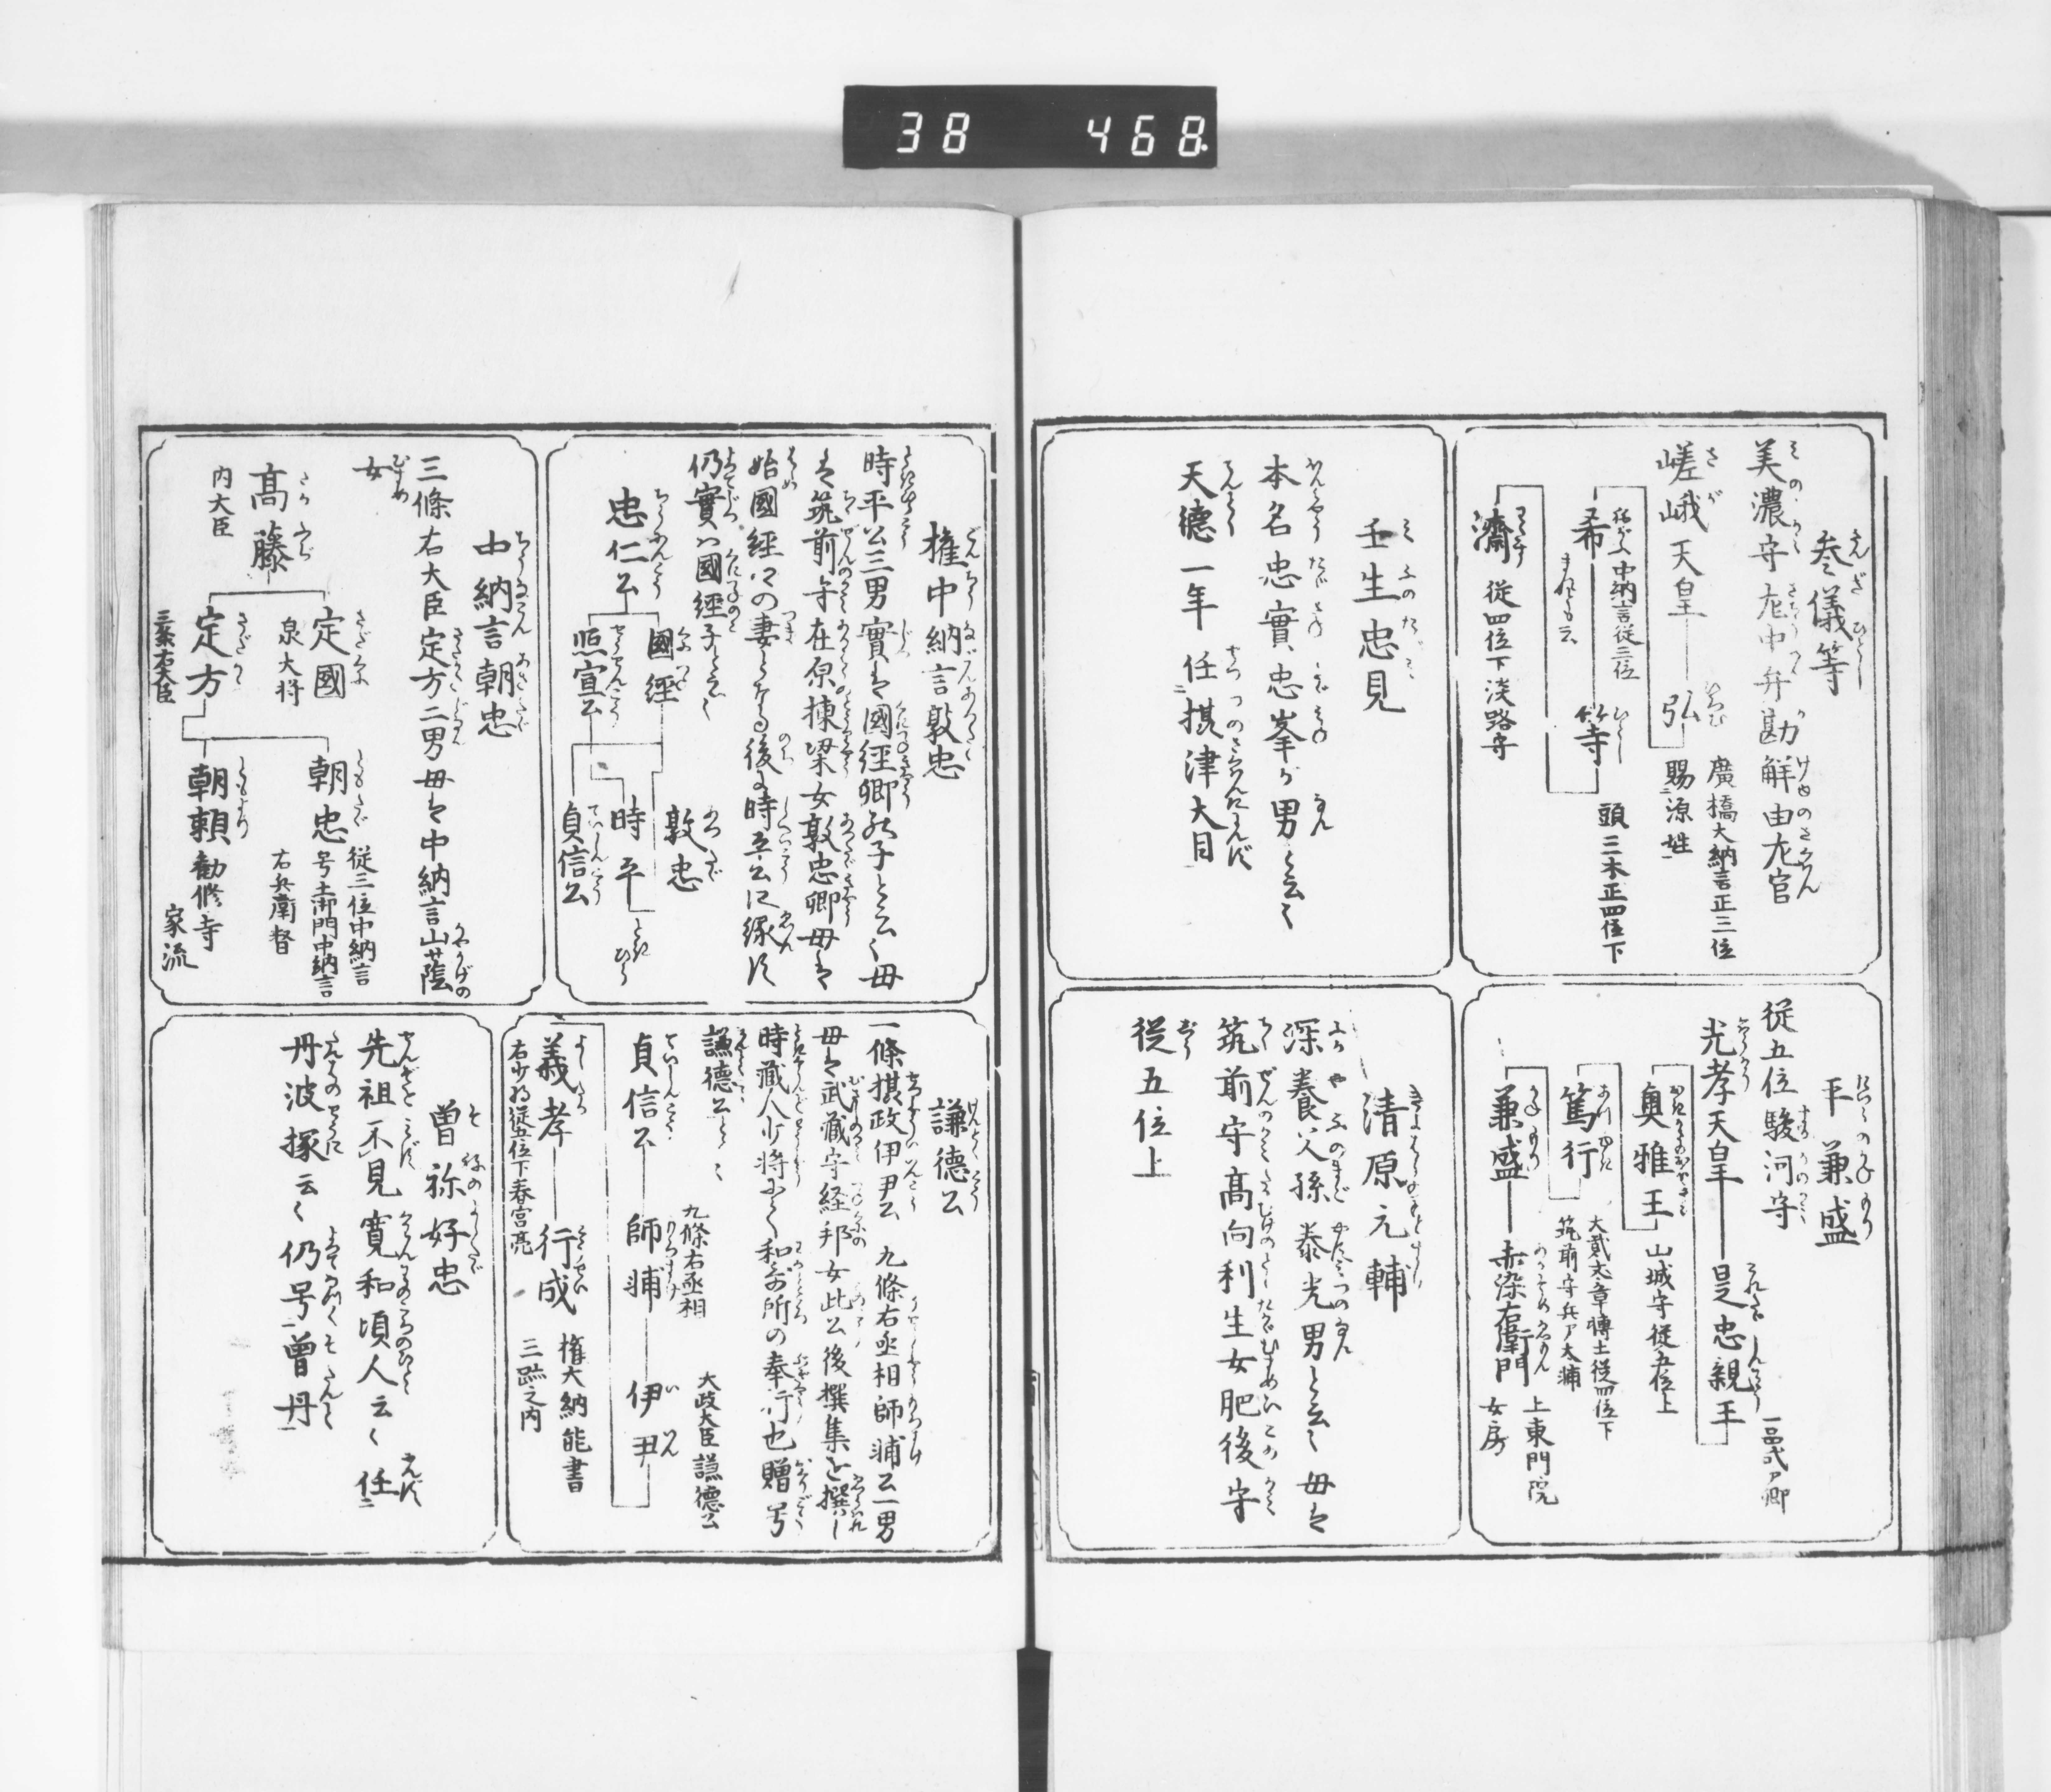 38 468
参儀等
美濃守左中弁勘解由左官
嵯峨天皇
弘
廣橋大納言正三位
賜源姓
希
中納言従三位
等
頭三木正四位下
濟
従四位下淡路守
壬生忠見
本名忠實忠峯が男と云々
天徳一年任摂津大目
平兼盛
従五位駿河守
光孝天皇
是忠親王
一品式ア卿
興雅王
山城守従五位上
篤行
大貳大章博士従四位下
筑前守兵ア大輔
兼盛
赤染右衛門
上東門院
女房
清原元輔
深養父孫泰光男と云々母は
筑前守高向利生女肥後守
従五位上
権中納言敦忠
時平公三男實は國経卿の子と云々母
は筑前守在原棟梁女敦忠卿母は
始國経の妻となる後に時平公に縁ず
仍實ハ國経子と云々
忠仁公
國経
照宣公
敦忠
時平
貞信公
中納言朝忠
三條右大臣定方二男母は中納言山蔭
女
高藤
内大臣
定國
泉大将
定方
三条右大臣
朝忠
従三位中納言
号土御門中納言
右兵衛督
朝頼
勧修寺
家流
謙徳公
一條摂政伊尹公九條右丞相師輔公一男
母は武蔵守経邦女此公後撰集を撰し
時蔵人少将にて和哥所の奉行也贈号
謙徳公と云々
貞信公
師輔
九條右丞相
伊尹
大政大臣謙徳公
義孝
右少将従五位下春宮亮
行成
権大納能書
三跡之内
曽祢好忠
先祖不見寛和頃人云々任
丹波掾云々仍号曽丹